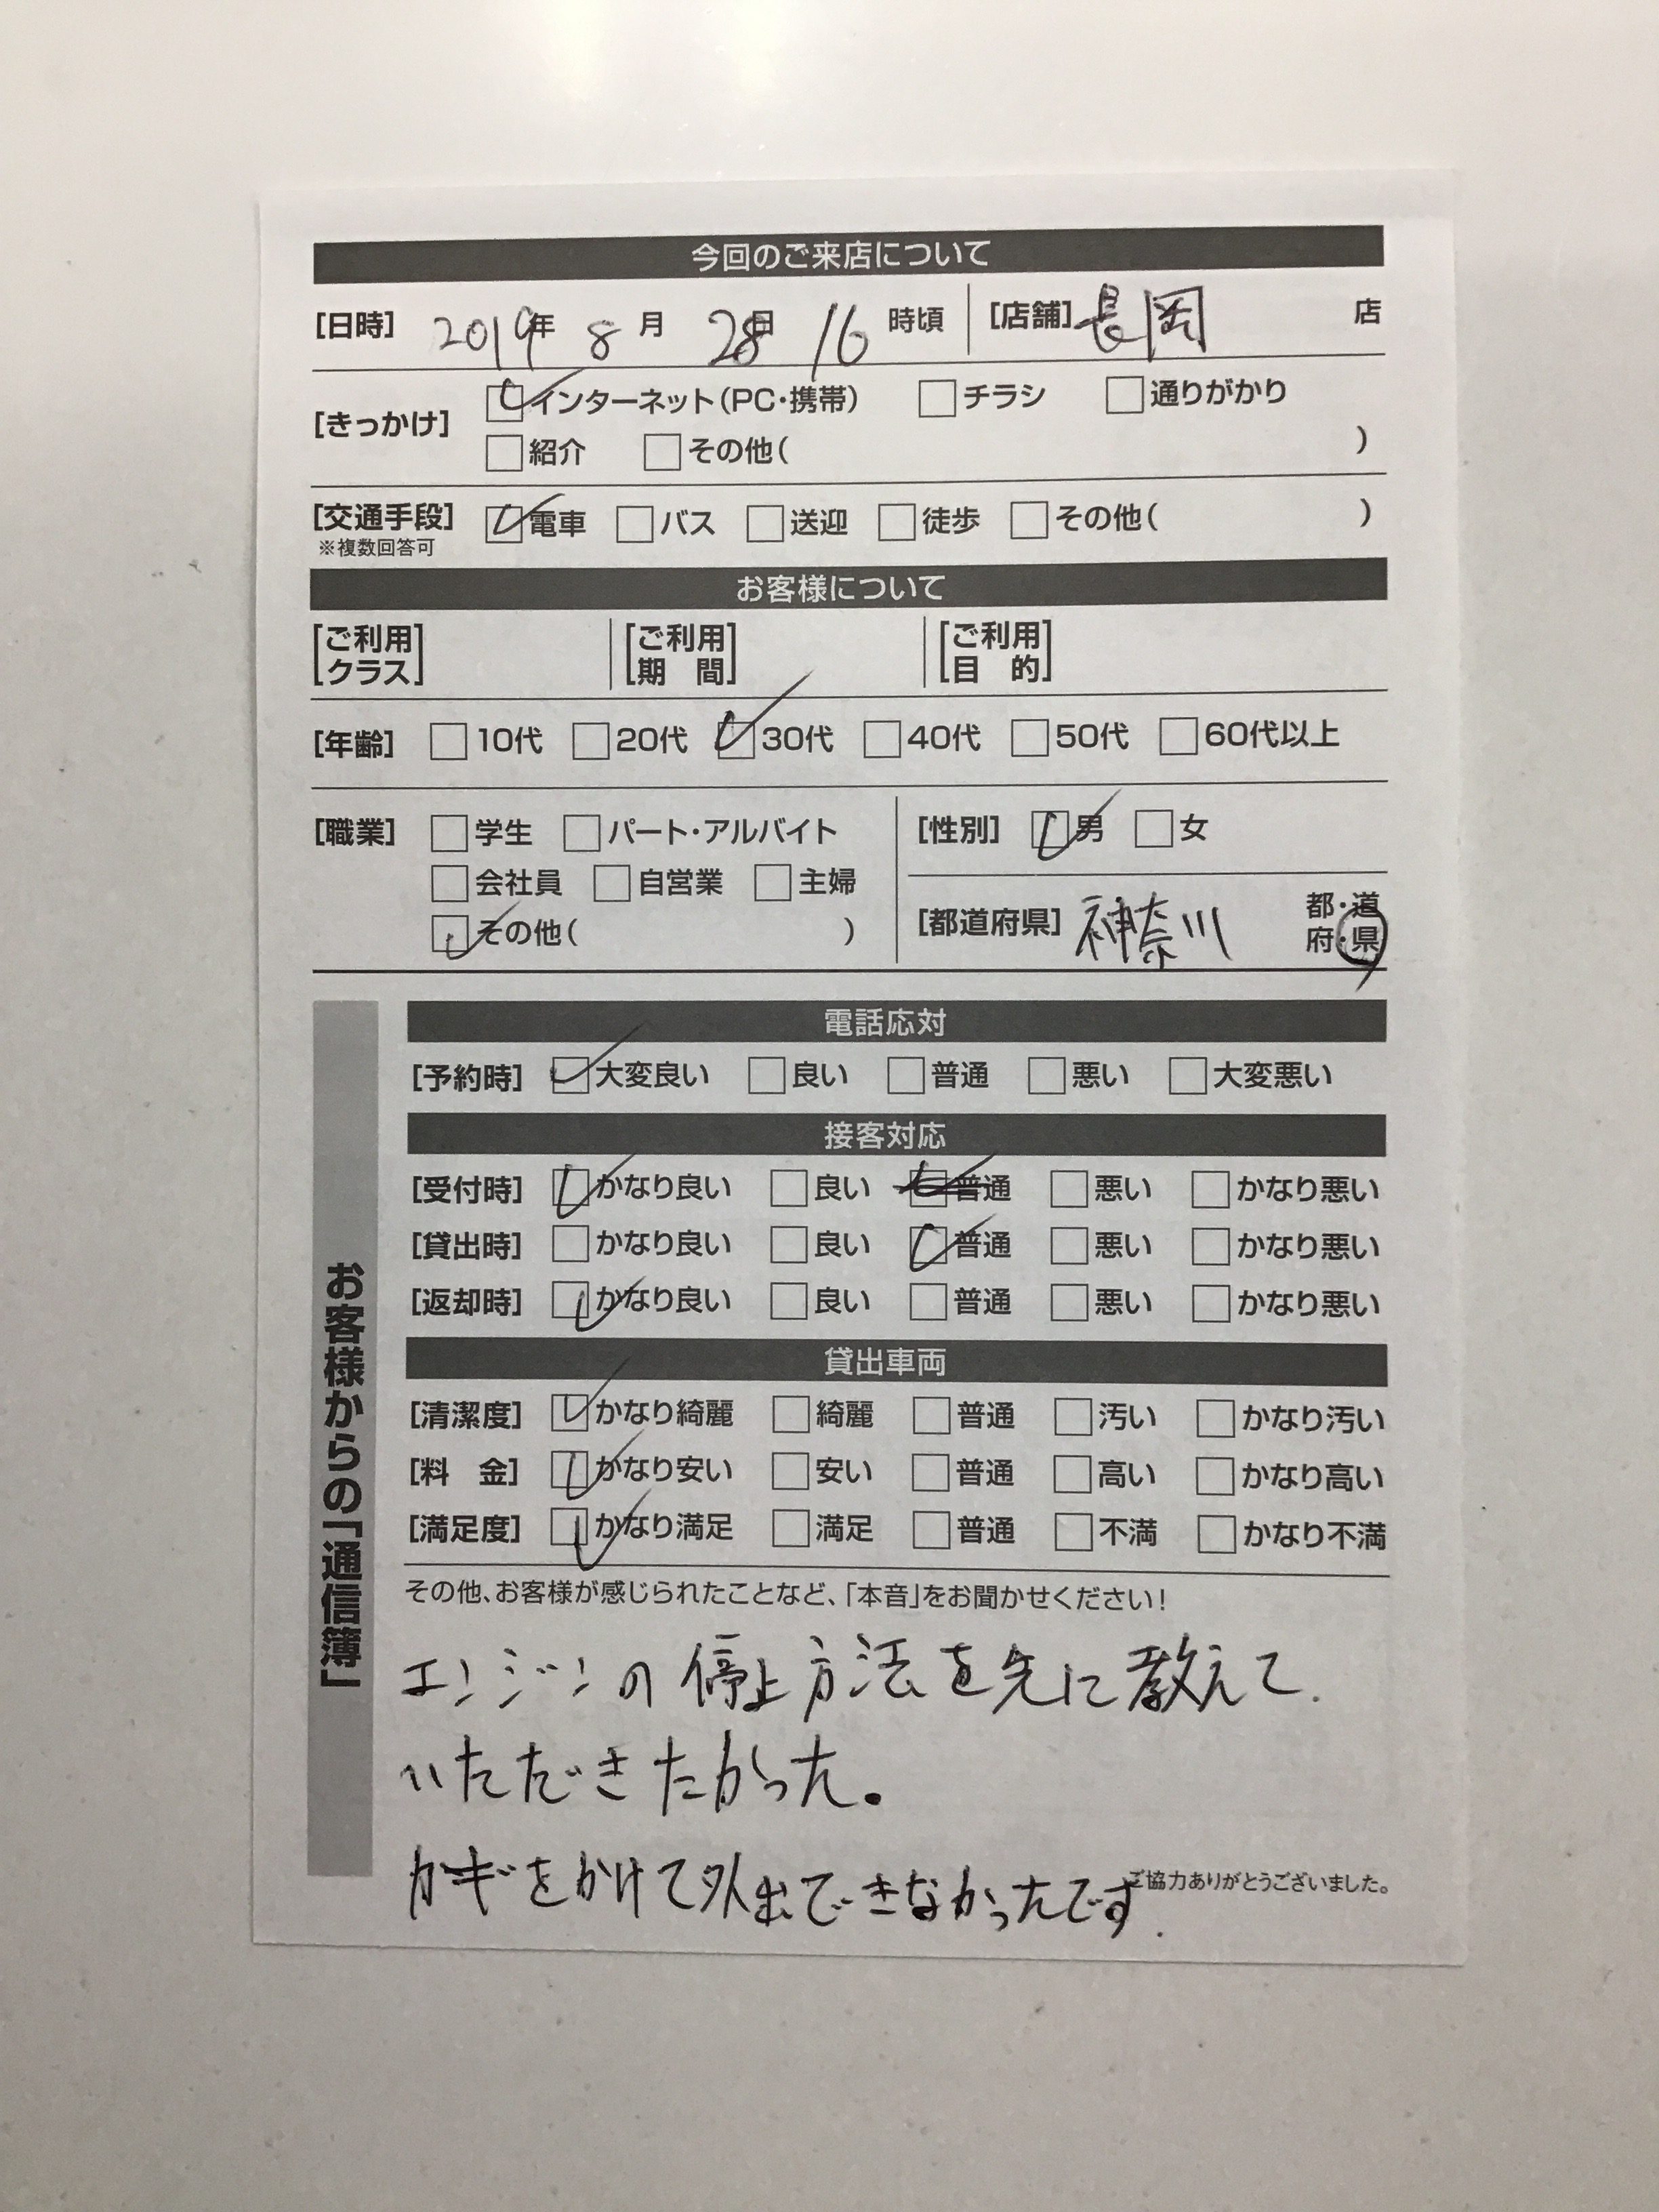 今回のご来店について
[日時] 2019年 8月 28日 16時頃 [店舗] 長岡 店
[きっかけ] インターネット(PC・携帯) チラシ 通りがかり
紹介 その他( )
[交通手段] 電車 バス 送迎 徒歩 その他( )
※複数回答可
お客様について
[ご利用クラス] [ご利用期間] [ご利用目的]
[年齢] 10代 20代 30代 40代 50代 60代以上
[職業] 学生 パート・アルバイト
会社員 自営業 主婦
その他( )
[性別] 男 女
[都道府県] 神奈川 都・道
府・県
お客様からの「通信簿」
電話応対
[予約時] 大変良い 良い 普通 悪い 大変悪い
接客対応
[受付時] かなり良い 良い 普通 悪い かなり悪い
[貸出時] かなり良い 良い 普通 悪い かなり悪い
[返却時] かなり良い 良い 普通 悪い かなり悪い
貸出車両
[清潔度] かなり綺麗 綺麗 普通 汚い かなり汚い
[料 金] かなり安い 安い 普通 高い かなり高い
[満足度] かなり満足 満足 普通 不満 かなり不満
その他、お客様が感じられたことなど、「本音」をお聞かせください!
エンジンの停止方法を先に教えて
いただきたかった。
カギをかけて外出できなかったです.
ご協力ありがとうございました。